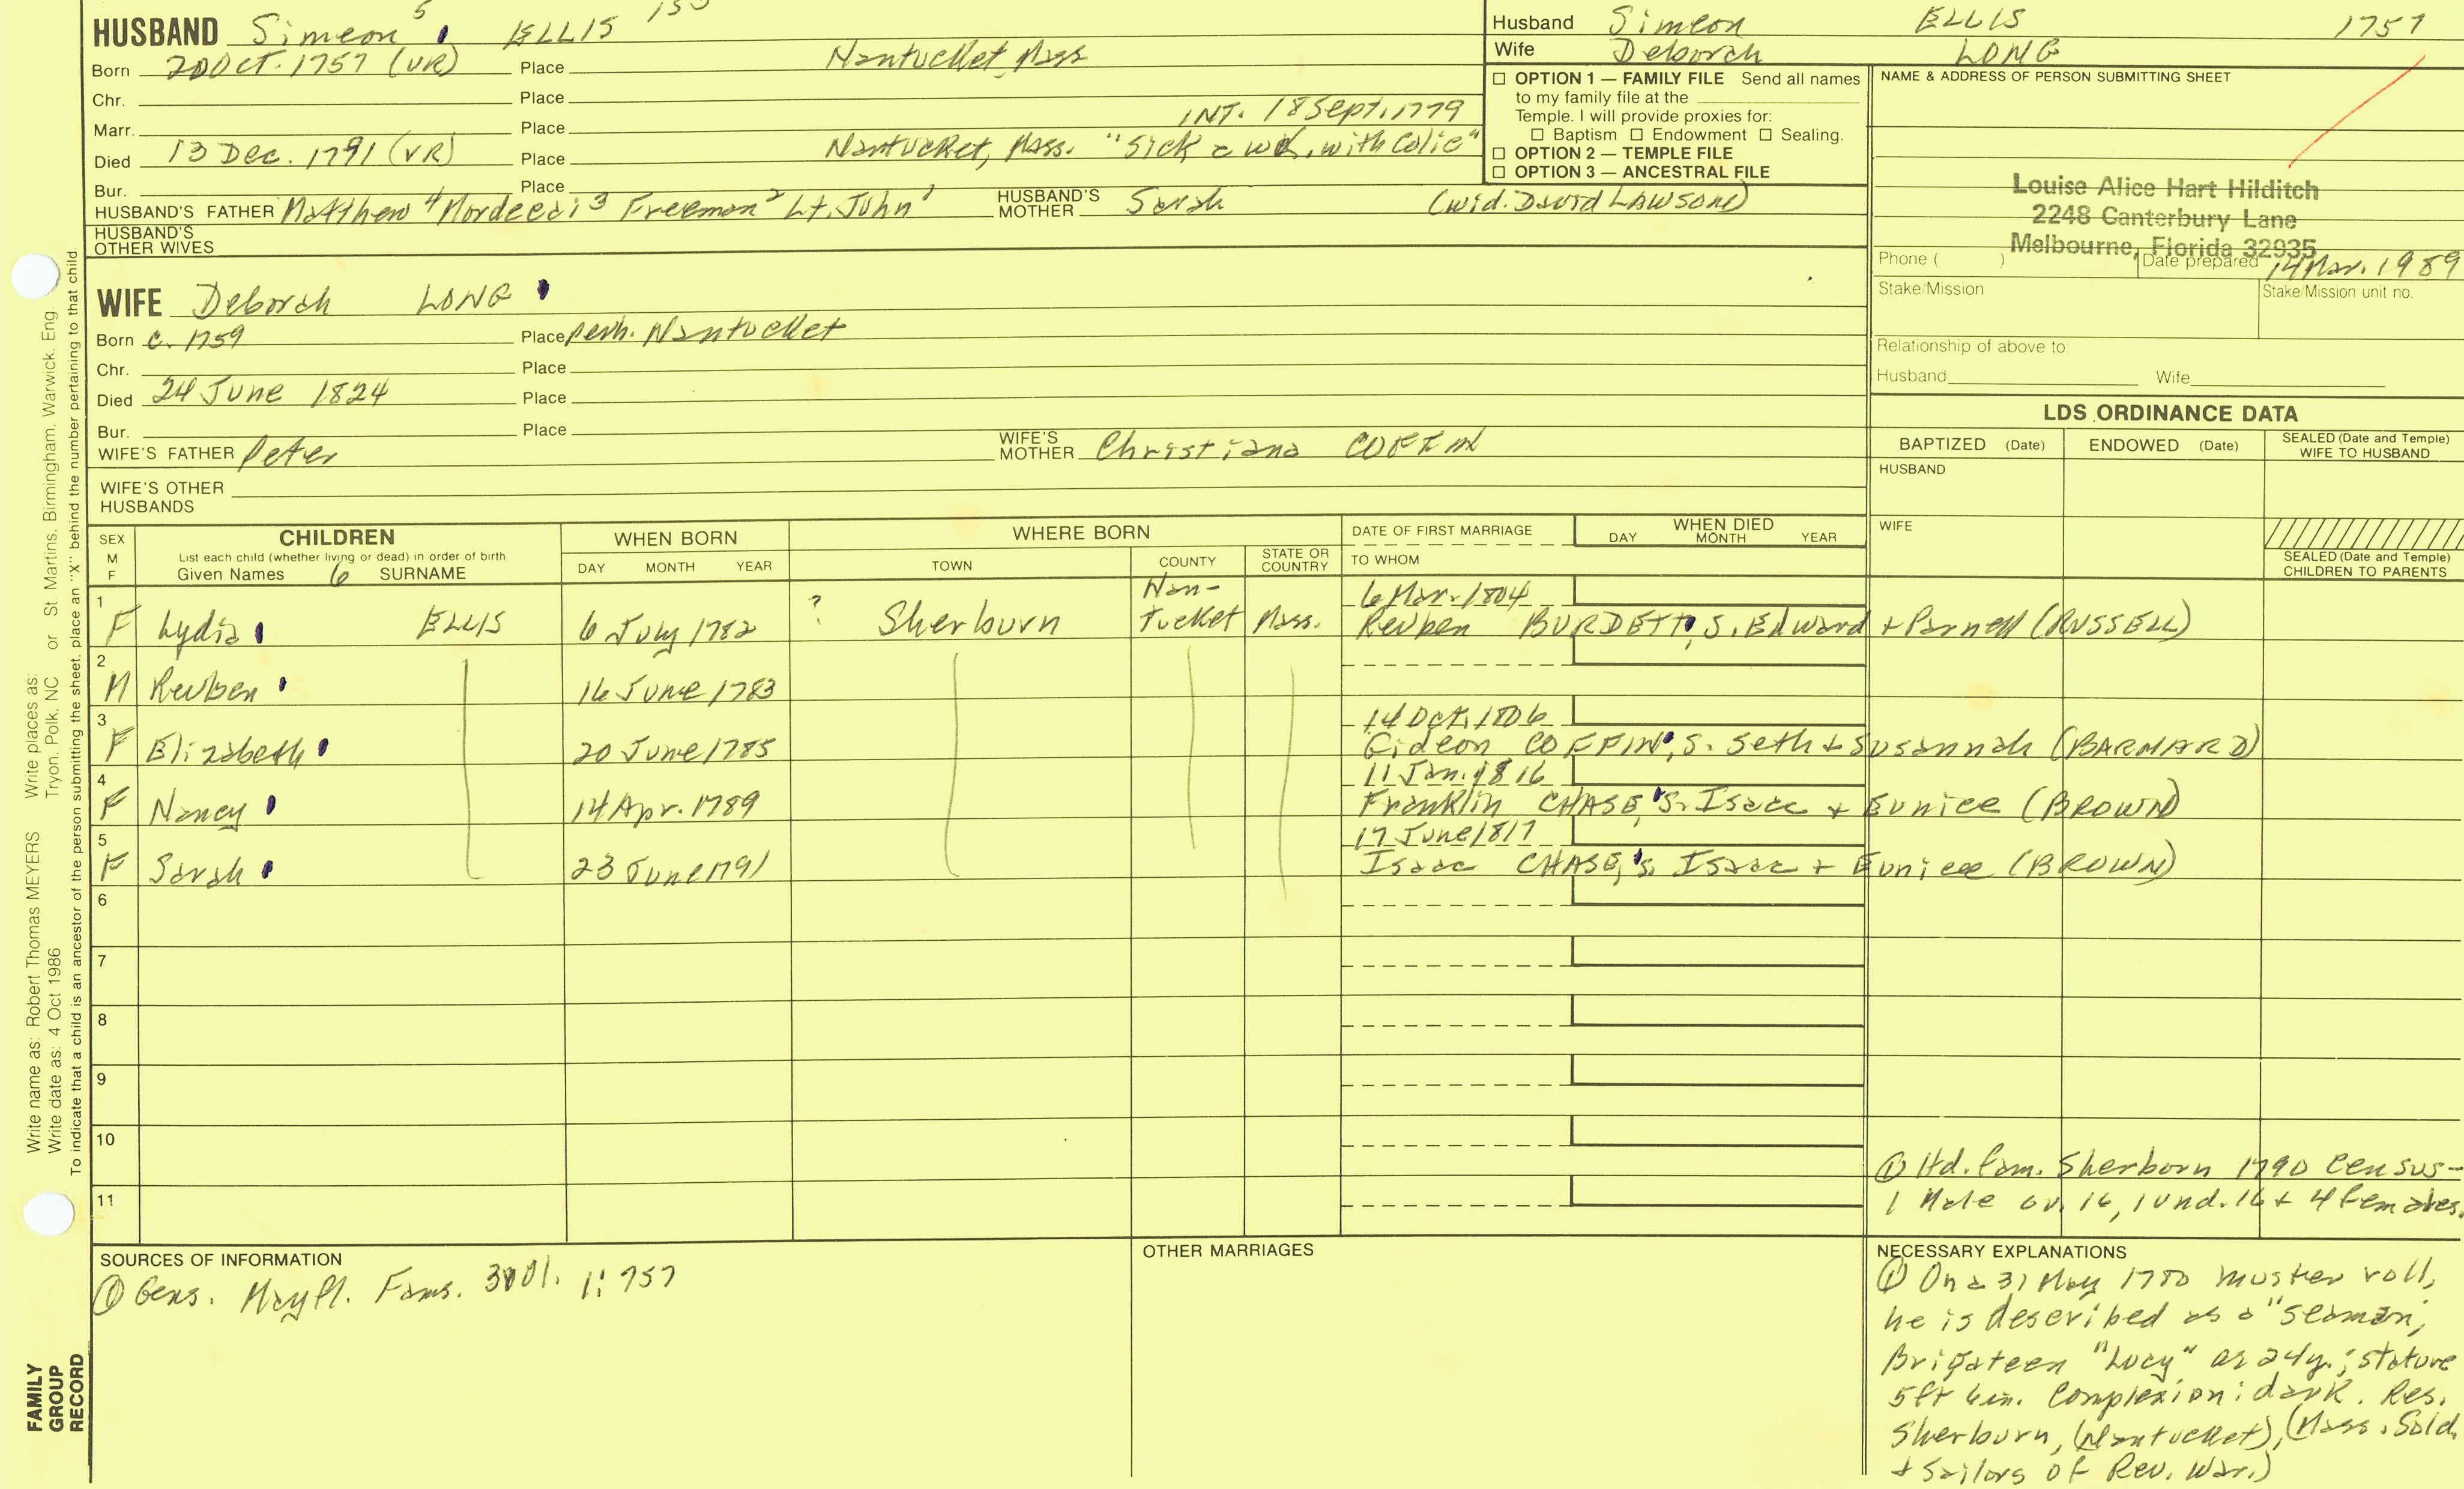 HUSBAND Simeon 5 ELLIS
Born 20 Oct. 1757 (VR) Place Nantucket, Mass
Chr. Place
Marr. Place INT. 18 Sept. 1779
Died 13 Dec. 1791 (VR) Place Nantucket, Mass. "Sick a wk. with Colic"
Bur. Place
HUSBAND'S FATHER Matthew 4 Mordecai 3 Freeman 2 Lt. John 1 HUSBAND'S MOTHER Sarah (wid. David LAWSON)
HUSBAND'S OTHER WIVES
WIFE Deborah LONG
Born c. 1759 Place perh. Nantucket
Chr. Place
Died 24 June 1824 Place
Bur. Place
WIFE'S FATHER Peter WIFE'S MOTHER Christiana COFFIN
WIFE'S OTHER HUSBANDS
Husband Simeon ELLIS 1757
Wife Deborah LONG
☐ OPTION 1 — FAMILY FILE Send all names
to my family file at the
Temple. I will provide proxies for:
☐ Baptism ☐ Endowment ☐ Sealing.
☐ OPTION 2 — TEMPLE FILE
☐ OPTION 3 — ANCESTRAL FILE
NAME & ADDRESS OF PERSON SUBMITTING SHEET
Louise Alice Hart Hilditch
2248 Canterbury Lane
Melbourne, Florida 32935
Phone ( ) Date prepared 14 Mar. 1989
Stake/Mission Stake/Mission unit no.
Relationship of above to
Husband Wife
LDS ORDINANCE DATA
BAPTIZED (Date) ENDOWED (Date) SEALED (Date and Temple) WIFE TO HUSBAND
HUSBAND
WIFE
SEALED (Date and Temple)
CHILDREN TO PARENTS
SEX M F CHILDREN WHEN BORN WHERE BORN DATE OF FIRST MARRIAGE WHEN DIED
List each child (whether living or dead) in order of birth
Given Names 6 SURNAME DAY MONTH YEAR TOWN COUNTY STATE OR COUNTRY TO WHOM DAY MONTH YEAR
1 6 Mar. 1804
F Lydia ELLIS 6 July 1782 ? Sherburn Nan-tucket Mass. Reuben BURDETT, s. Edward + Parnell (RUSSELL)
2
M Reuben 16 June 1783
3 14 Oct. 1806
F Elizabeth 20 June 1785 Gideon COFFIN, s. Seth + Susannah (BARNARD)
4 11 Jan. 1816
F Nancy 14 Apr. 1789 Franklin CHASE, s. Isaac + Eunice (BROWN)
5 17 June 1817
F Sarah 23 June 1791 Isaac CHASE, s. Isaac + Eunice (BROWN)
6
7
8
9
10
11
① Hd. fam. Sherborn 1790 Census-
1 Male ov. 16, 1 und. 16 + 4 females.
SOURCES OF INFORMATION
① Gens. Mayfl. Fams. 1:757
OTHER MARRIAGES
NECESSARY EXPLANATIONS
① On a 31 May 1780 muster roll,
he is described as a "seaman,
Brigateen "Lucy" as 24y.; stature
5ft 6in. Complexion: dark. Res.
Sherburn, (Nantucket), (Mass. Sold.
+ Sailors of Rev. War.)
Write name as: Robert Thomas MEYERS Write places as: Tryon, Polk, NC or St Martins, Birmingham, Warwick, Eng.
Write date as: 4 Oct 1986
To indicate that a child is an ancestor of the person submitting the sheet, place an "X" behind the number pertaining to that child
FAMILY
GROUP
RECORD